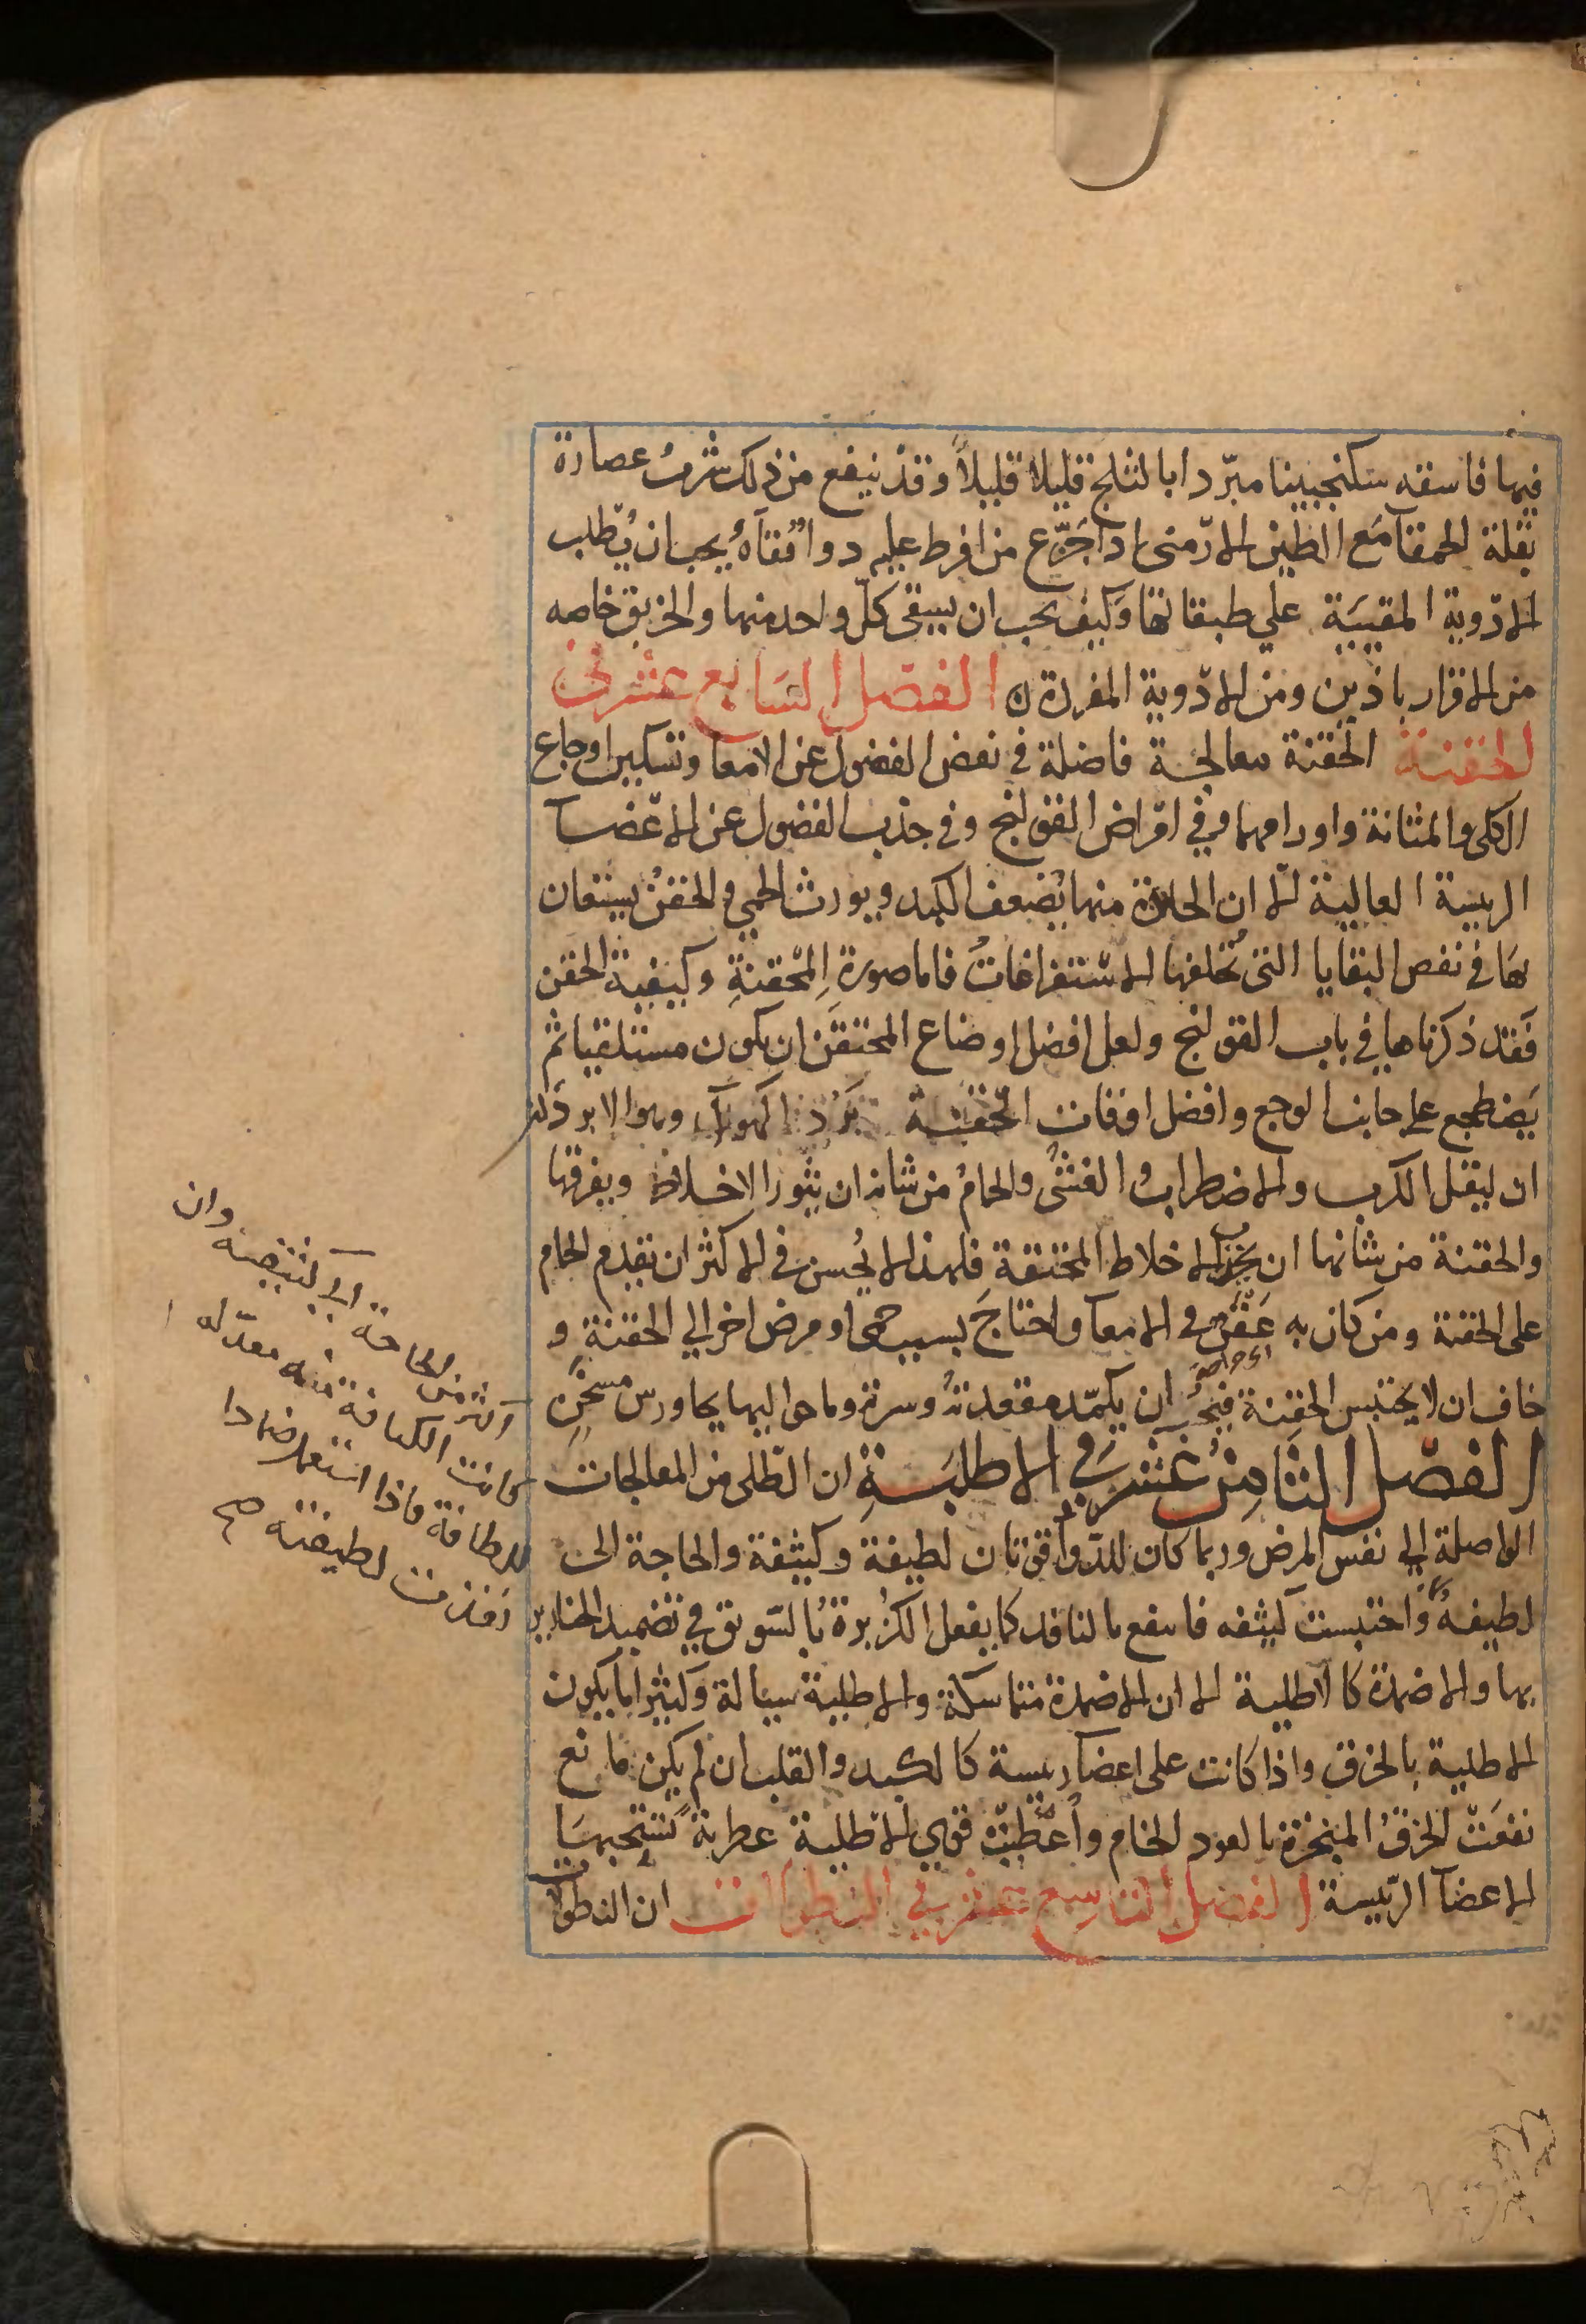 فيها فاسقه سكنجبينا مبرّدا بالثلج قليلا قليلاً وقد ينفع من ذلك شرب عصارة
بقلة الحمقا مَع الطين الارمنى اذا جَرّع من افرط عليه دواً قُقيآهُ يجب ان يُطلب
الادوية المقيئة علي طبقاتها وَكيف يجب ان يسقى كلّ واحد منها والخربق خاصه
من الاقراباذين ومن الادوية المفردة ه الفصَل السَابع عشر فى
الحقنة الحقنة معالجة فاضلة في نفض الفضول عن الامعا وتسكين اوجاع
الكلى والمثانة واورامهما وفي امراض القولنج وفي جذب الفضول عن الاعضآ
الرييسة العالية الا ان الحادة منها يُضعف الكبد ويورث الحمي والحقن يستعان
بهَا في نفض البقايا التى تُخلفها الاستفراغاتُ فاما صورة المحقنةِ وكيفية الحقن
فَقد ذكرناها في باب القولنج ولعل افضل اوضاع المحتقن ان يكون مستلقيا ثم
يَضطجع على جانب الوجع وافضل اوقات الحقنة بَرْد الهوآ وهو الابردان
ان ليقل الكرب والاضطرابُ والغشىُ والحمامُ من شانه ان يثور الاخلاط ويفرقها
والحقنة من شانها ان يجذب الاخلاط المحتقنة فلهذا لا يُحسن في الاكثر ان يقدم الحمام
على الحقنة ومن كان به عَقرٌ في الامعا واحتاج بسبب حمى او مرض اخر الي الحقنة و
خاف ان لا يحتبس الحقنة فيجب ان يكمّد مقعدتهُ وسرته وما حواليها بجاورس مسخّنٍ
الفصَل الثامِن عَشر في الاطلية ان الطّلى من المعالجات
الواصلة الي نفس المرض وربما كان للدّوآ قوتان لطيفة وكثيفة والحاجة الى
لطيفهُ واحتبست كثيفه فانتفع بالنافذ كما يفعل الكزبرة بالسّويق في تضميد الخنازير
بها والاضمدة كالاطلية الا ان الاضمدة متماسكة والاطلية سيالة وكثيرا ما يكون
الاطلية بالخرق واذا كانت على اعضآ رييسة كالكبد والقلب ان لم يكن مانع
نفعَت الخرقُ المبخرة بالعود الخام وأَعْطَت قوي الاطلية عطرية تستحبهَا
الاعضآ الرّييسة الفصل التاسِع عشر في النطولات ان النطولات
اكثر من الحاجة الي كثيفته وان
كانت الكثافة منه معدّلة ا
للطافة فاذا استعمل ضمادا
نفذت لطيفته صح